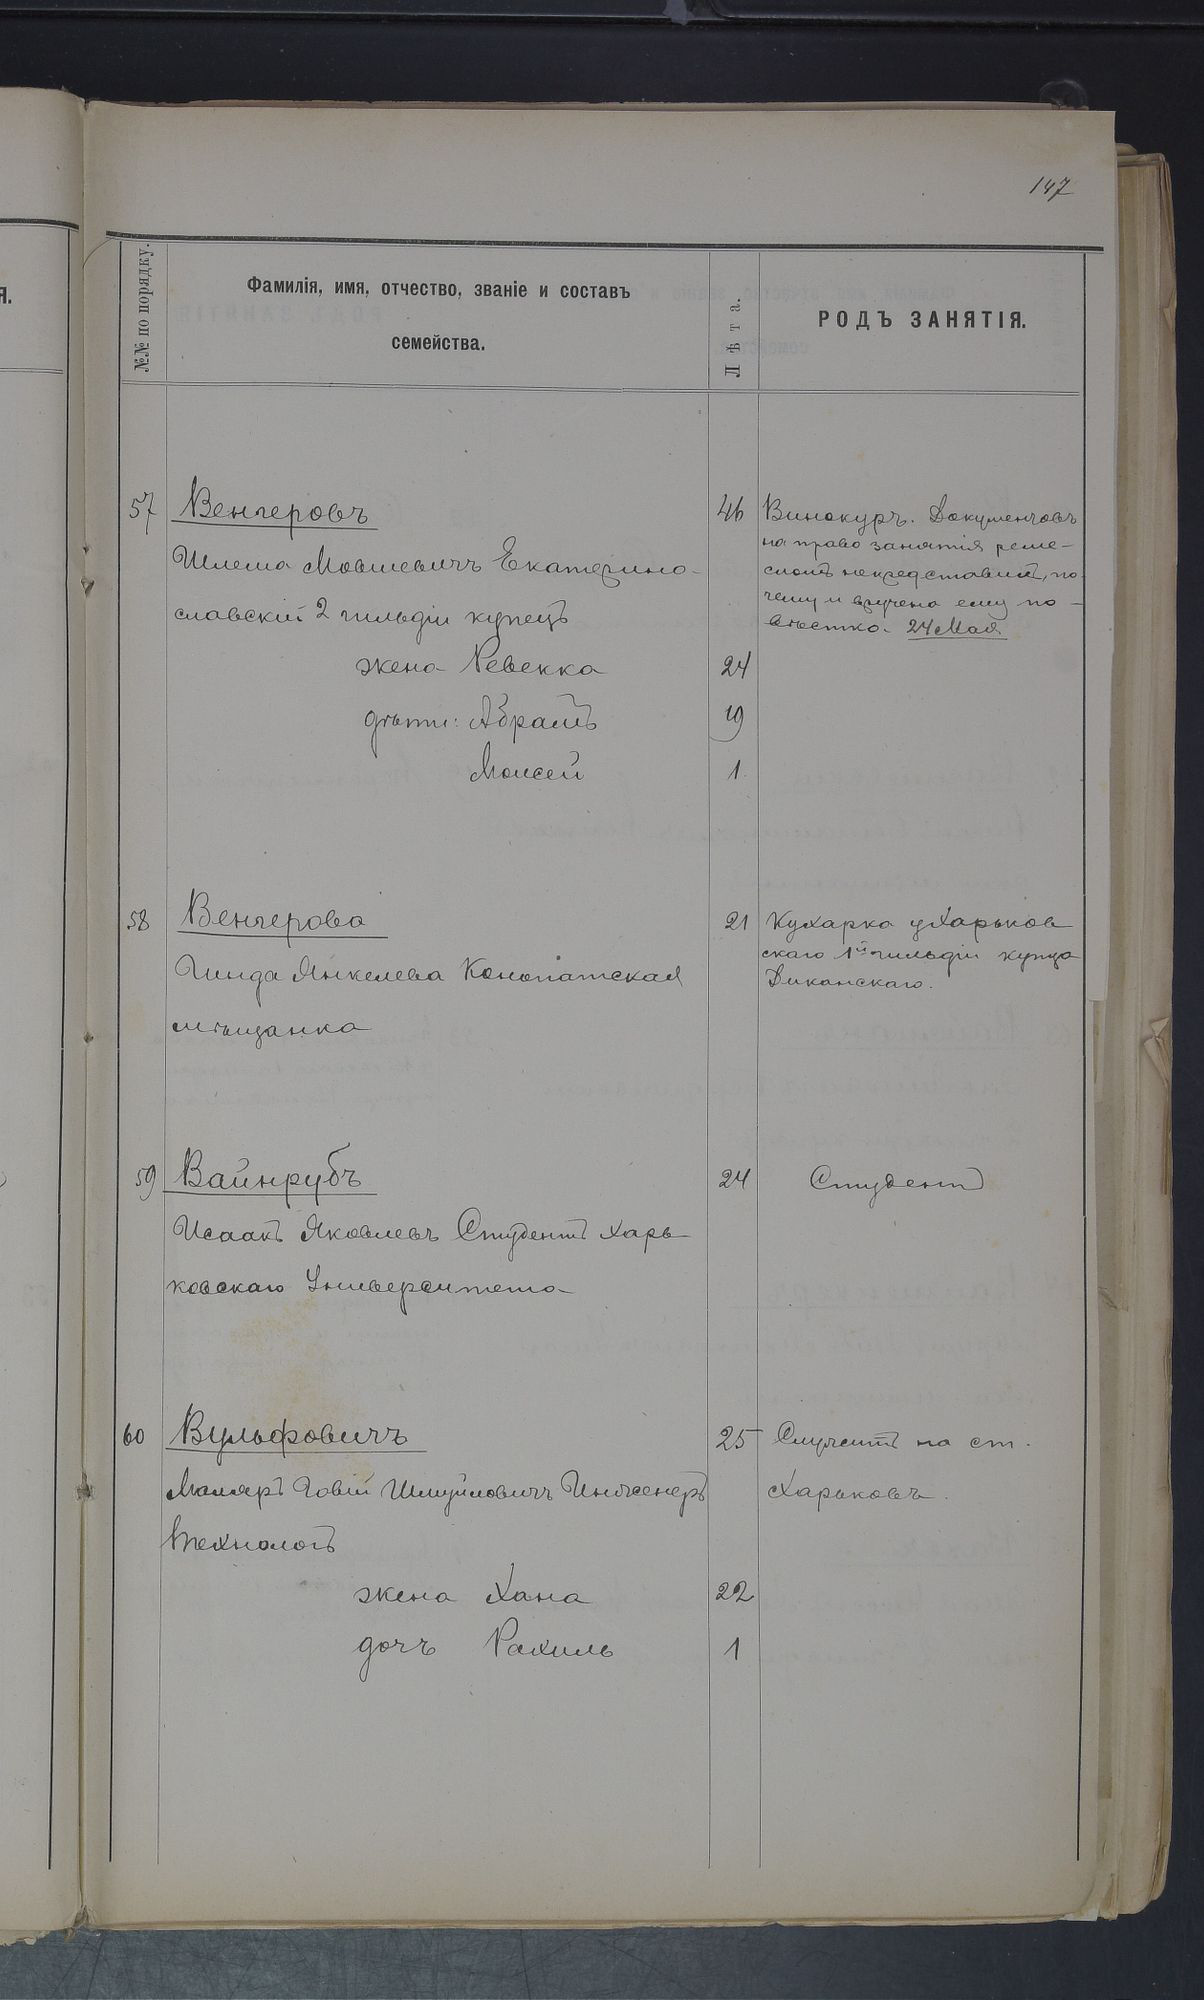 147
№№ по порядку.
Фамилія, имя, отчество, званіе и составъ
семейства.
Лѣта.
РОДЪ ЗАНЯТІЯ.
Я.
57 Венгеровъ 46 Винокуръ. Документовъ
на право занятія реме-
Шлема Мовшевичъ Екатерино-
сломъ не представилъ, по-
чему и вручена ему по-
славскій 2 гильдіи купецъ
вѣстка. 24 Мая
жена Ревекка 24
дѣти: Абрамъ 19
Моисей 1
58 Венгерова 21 Кухарка у Харьков
скаго 1й гильдіи купца
Гинда Янкелева Конопатская
Диканскаго.
мѣщанка
59 Вайнрубъ 24 Студентъ
Исаакъ Яковлевъ Студентъ Харь
ковскаго Университета
60 Вульфовичъ 25 Служитъ на ст.
Товій Шмуйловичъ Инженеръ Харьковъ.
Технологъ
жена Хана 22
дочь Рахиль 1